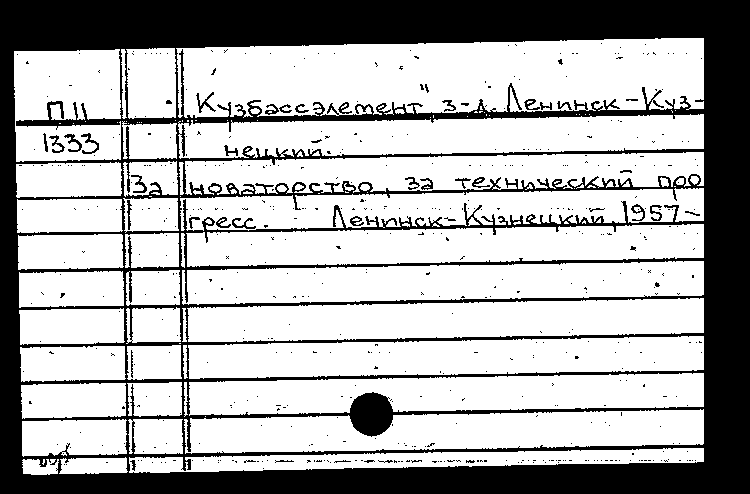 П 11 "Кузбассэлемент", з-д. Ленинск-Куз-
1333 нецкий.
За новаторство, за технический про
гресс. Ленинск-Кузнецкий, 1957-